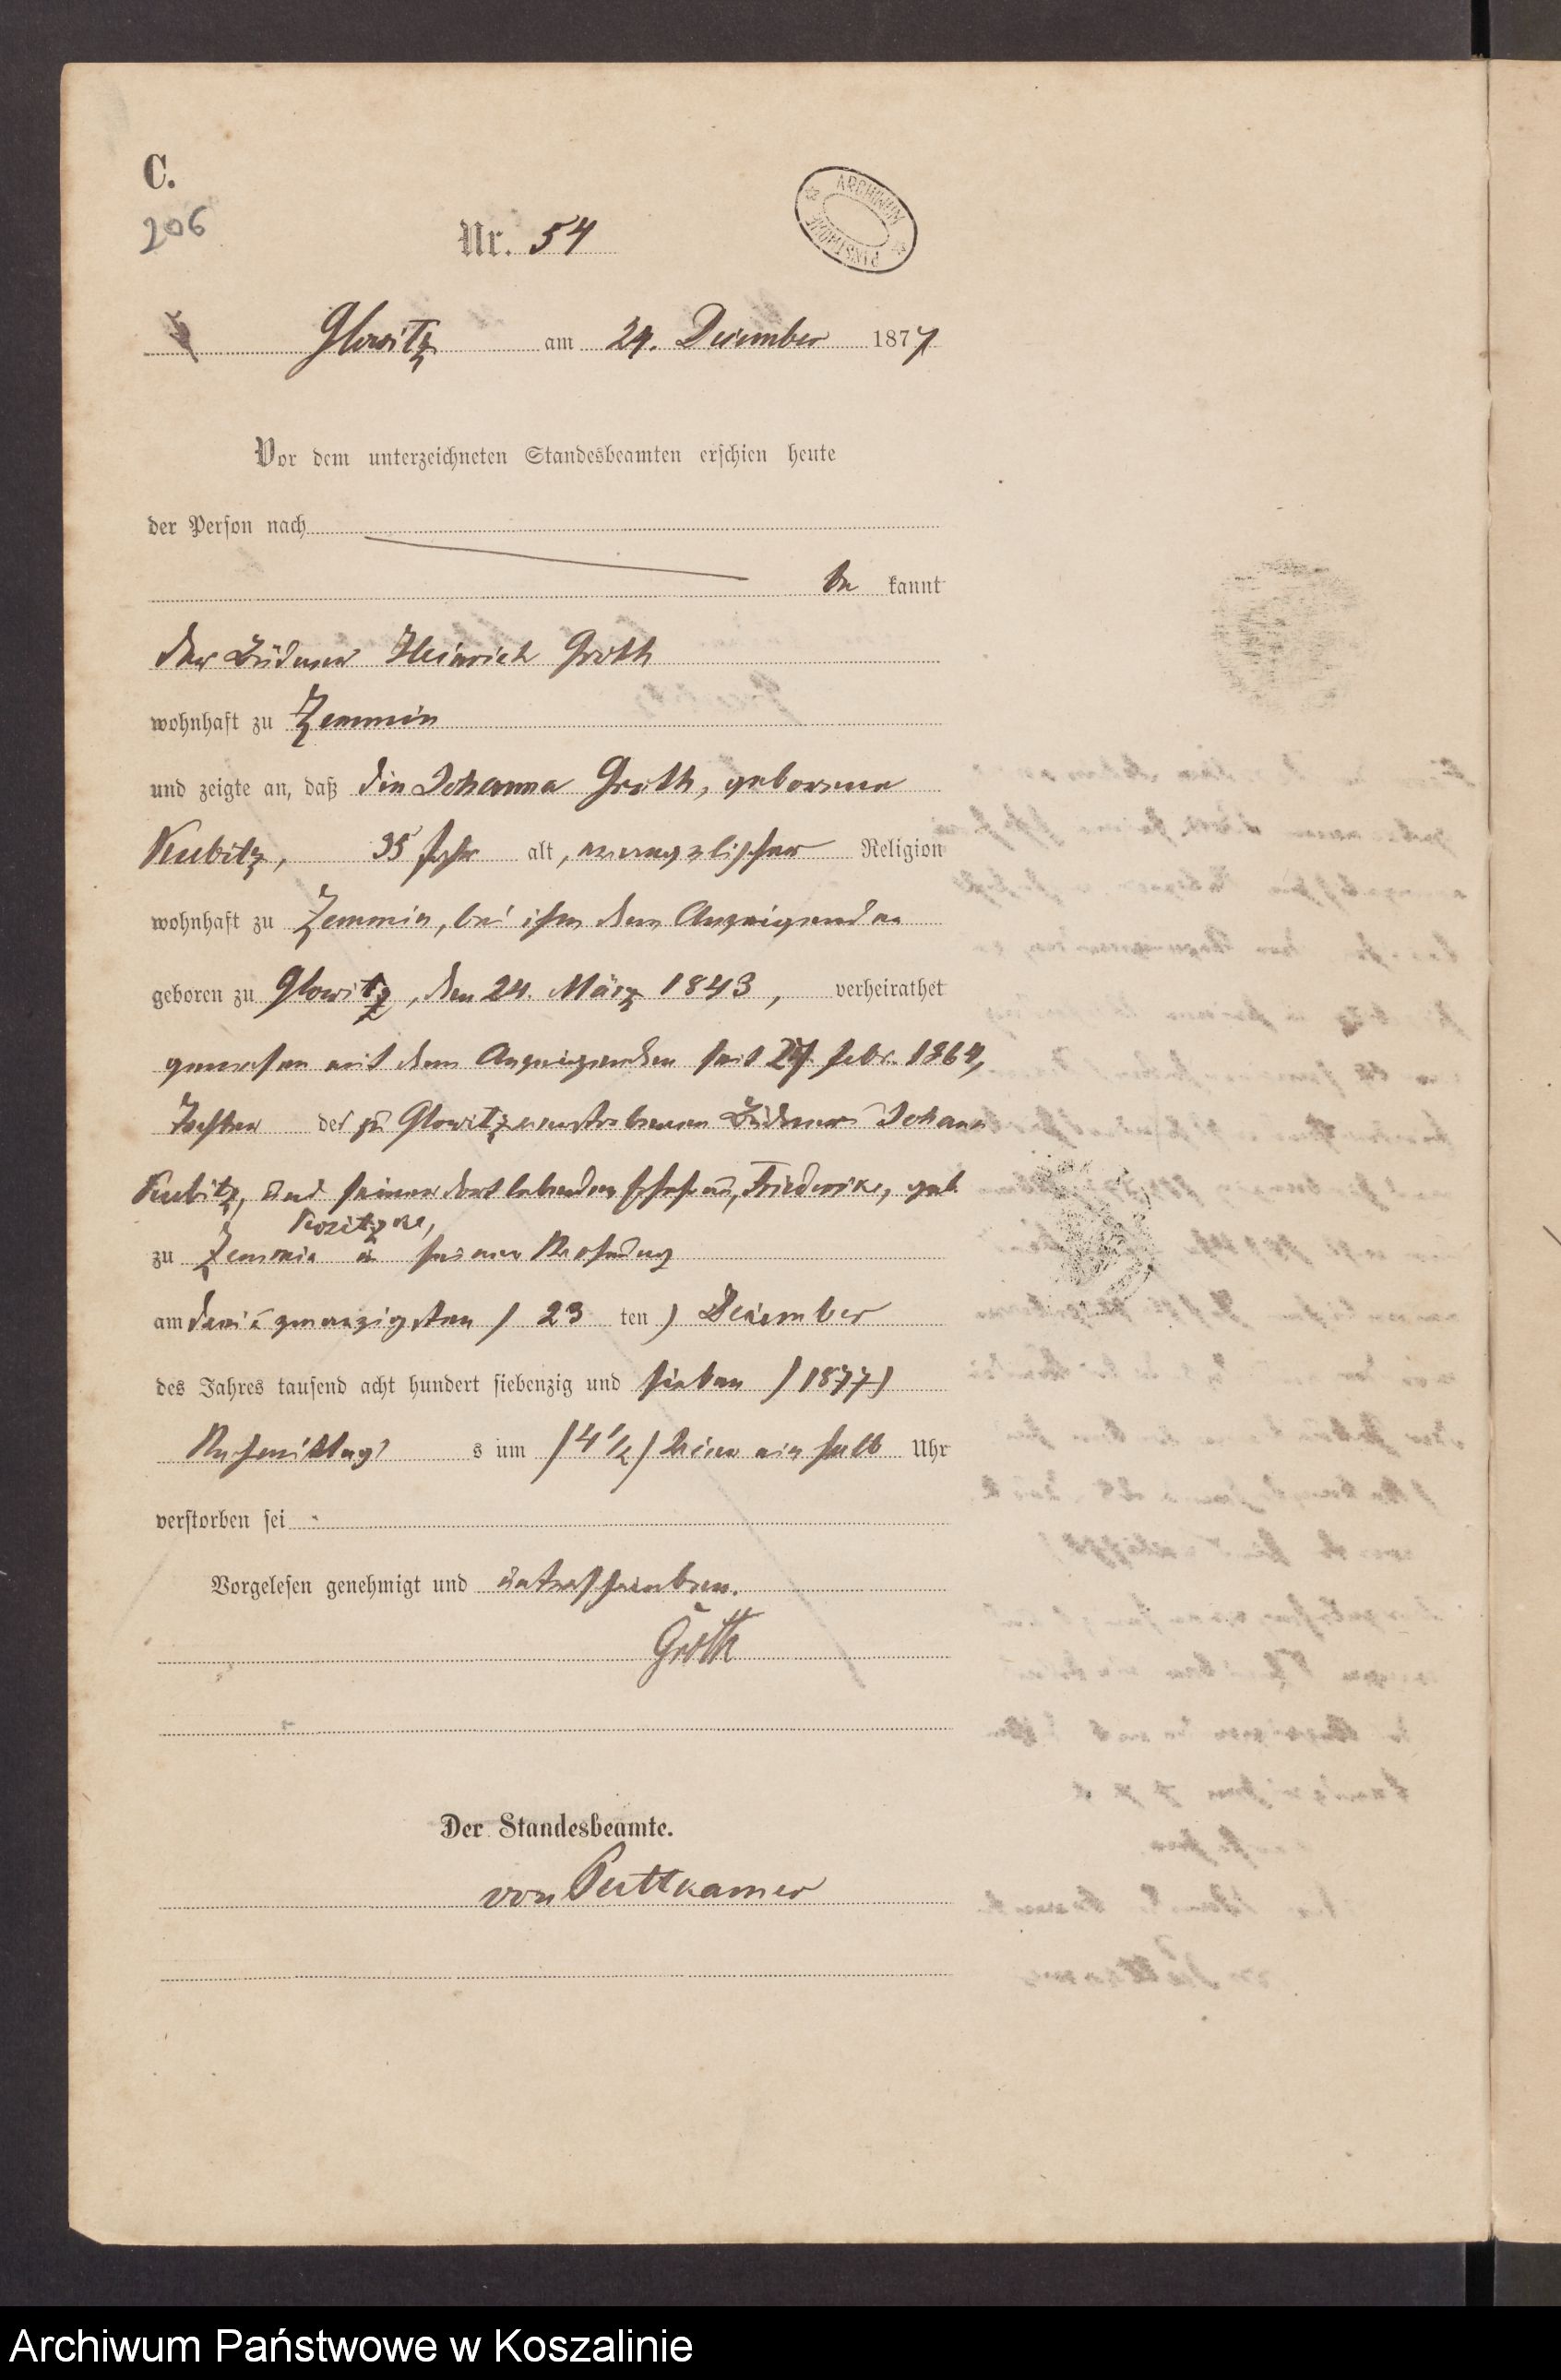 C.
206
Nr. 54
ARCHIWUM PAŃSTWOWE
Glowitz am 24. December 1877
Vor dem unterzeichneten Standesbeamten erschien heute
der Person nach
be kannt
der Büdner Heinrich Groth
wohnhaft zu Zemmin
und zeigte an, daß die Johanna Groth, geborene
Kubitz, 35 Jahr alt, evangelischer Religion
wohnhaft zu Zemmin, bei ihm dem Anzeigenden
geboren zu Glowitz, den 24. März 1843, verheirathet
gewesen mit dem Anzeigenden seit 27. Febr. 1864,
Tochter des zu Glowitz verstorbenen Büdners Johann
Kubitz, und seiner dort lebenden Ehefrau, Friederike, geb.
Kositzke,
zu Zemmin in seiner Behausung
am drei u zwanzigsten (23 ten) December
des Jahres tausend acht hundert siebenzig und sieben (1877)
Nachmittags s um (4 1/2) vier ein halb Uhr
verstorben sei
Vorgelesen genehmigt und unterschrieben.
Groth
Der Standesbeamte.
von Puttkamer
Archiwum Państwowe w Koszalinie